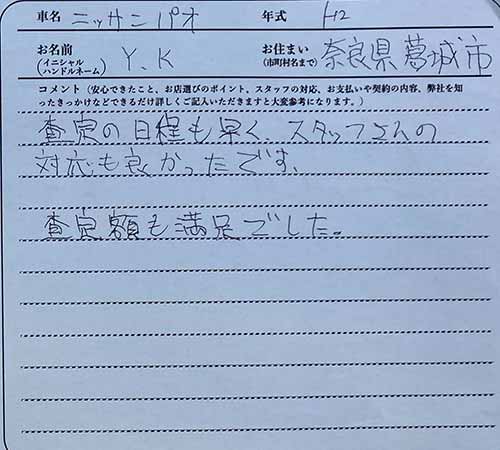 車名 ニッサン パオ 年式 H2
お名前 (イニシャル ハンドルネーム) Y.K お住まい (市町村名まで) 奈良県葛城市
コメント（安心できたこと、お店選びのポイント、スタッフの対応、お支払いや契約の内容、弊社を知
ったきっかけなどできるだけ詳しくご記入いただきますと大変参考になります。）
査定の日程も早く、スタッフさんの
対応も良かったです。
査定額も満足でした。